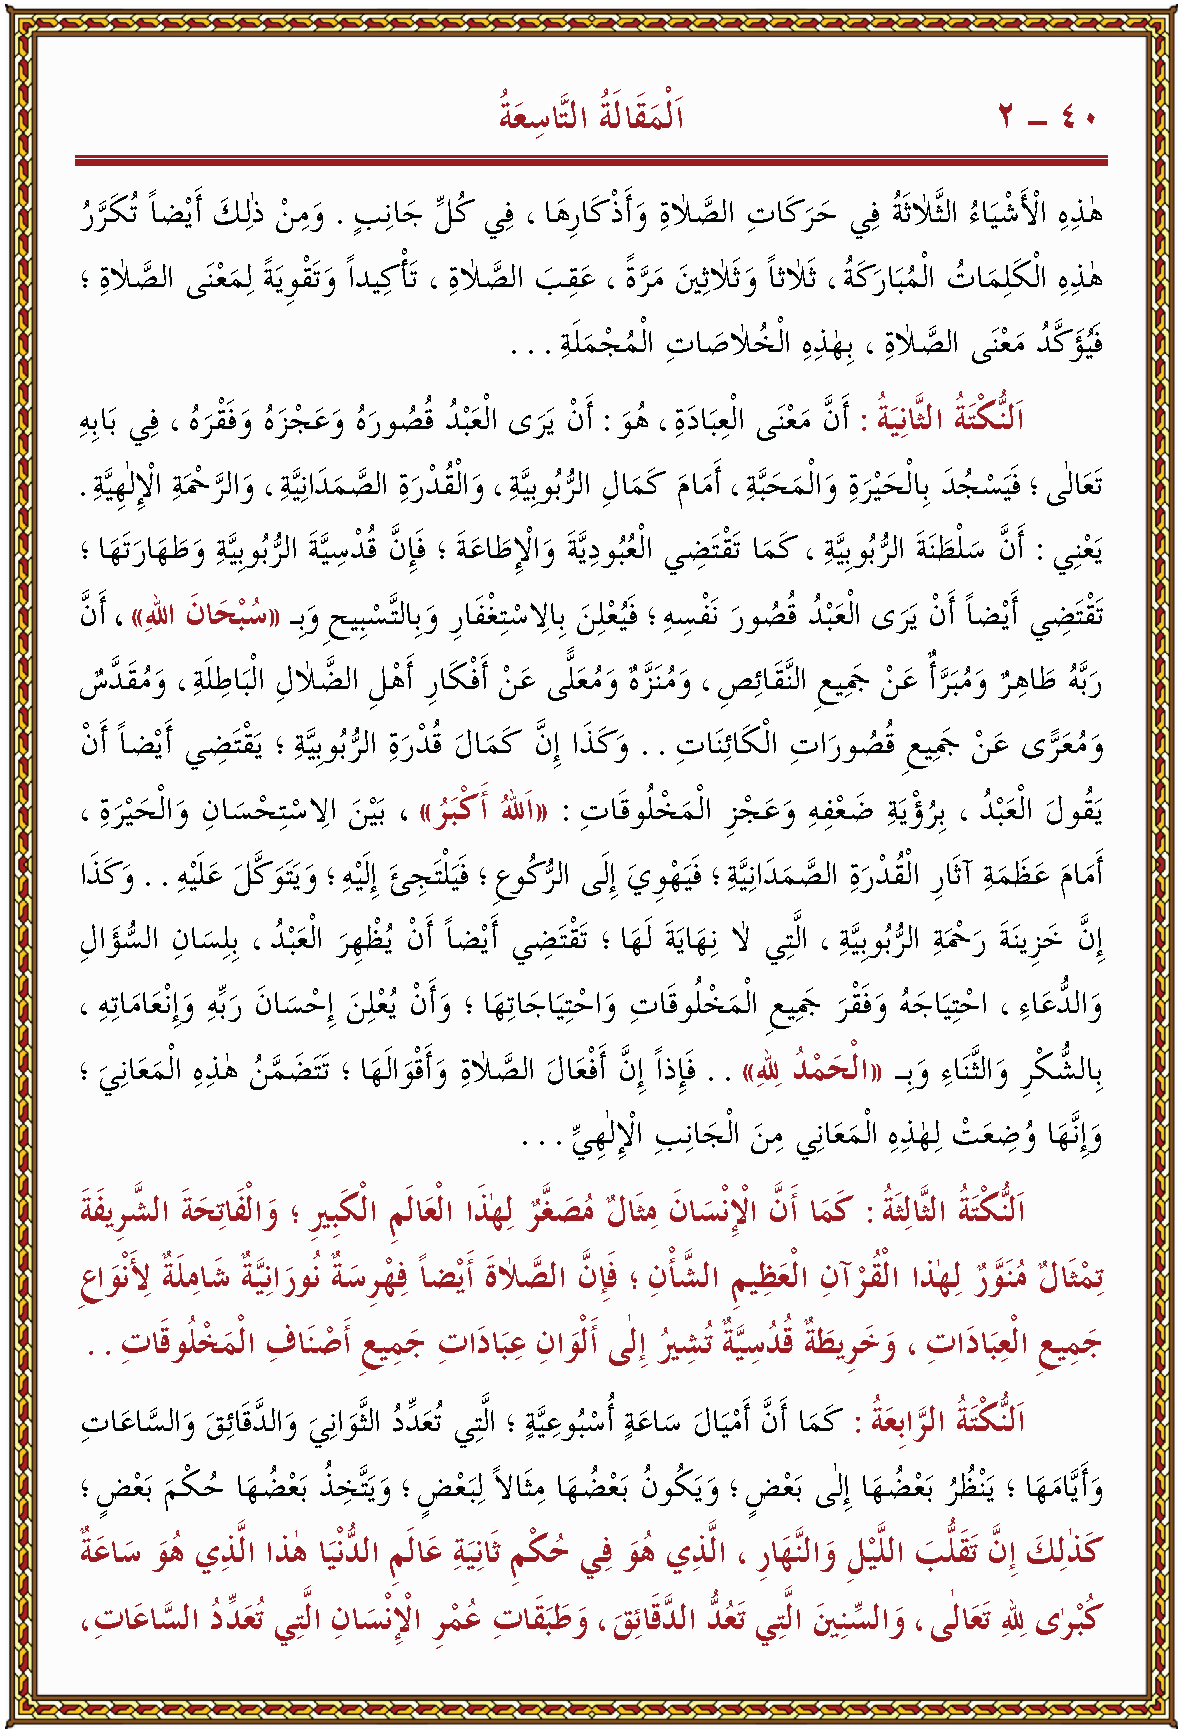 ٤٠ – ٢ اَلْمَقَالَةُ التَّاسِعَةُ
هٰذِهِ الْأَشْيَاءُ الثَّلٰاثَةُ فِي حَرَكَاتِ الصَّلٰاةِ وَأَذْكَارِهَا ، فِي كُلِّ جَانِبٍ . وَمِنْ ذٰلِكَ أَيْضاً تُكَرَّرُ
هٰذِهِ الْكَلِمَاتُ الْمُبَارَكَةُ ، ثَلٰاثاً وَثَلٰاثِينَ مَرَّةً ، عَقِبَ الصَّلٰاةِ ، تَأْكِيداً وَتَقْوِيَةً لِمَعْنَى الصَّلٰاةِ ؛
فَيُؤَكَّدُ مَعْنَى الصَّلٰاةِ ، بِهٰذِهِ الْخُلٰاصَاتِ الْمُجْمَلَةِ . . .
اَلنُّكْتَةُ الثَّانِيَةُ : أَنَّ مَعْنَى الْعِبَادَةِ ، هُوَ : أَنْ يَرَى الْعَبْدُ قُصُورَهُ وَعَجْزَهُ وَفَقْرَهُ ، فِي بَابِهِ
تَعَالٰى ؛ فَيَسْجُدَ بِالْحَيْرَةِ وَالْمَحَبَّةِ ، أَمَامَ كَمَالِ الرُّبُوبِيَّةِ ، وَالْقُدْرَةِ الصَّمَدَانِيَّةِ ، وَالرَّحْمَةِ الْإِلٰهِيَّةِ .
يَعْنِي : أَنَّ سَلْطَنَةَ الرُّبُوبِيَّةِ ، كَمَا تَقْتَضِي الْعُبُودِيَّةَ وَالْإِطَاعَةَ ؛ فَإِنَّ قُدْسِيَّةَ الرُّبُوبِيَّةِ وَطَهَارَتَهَا ؛
تَقْتَضِي أَيْضاً أَنْ يَرَى الْعَبْدُ قُصُورَ نَفْسِهِ ؛ فَيُعْلِنَ بِالِاسْتِغْفَارِ وَبِالتَّسْبِيحِ وَبِـ «سُبْحَانَ اللهِ» ، أَنَّ
رَبَّهُ طَاهِرٌ وَمُبَرَّأٌ عَنْ جَمِيعِ النَّقَائِصِ ، وَمُنَزَّهٌ وَمُعَلًّى عَنْ أَفْكَارِ أَهْلِ الضَّلٰالِ الْبَاطِلَةِ ، وَمُقَدَّسٌ
وَمُعَرًّى عَنْ جَمِيعِ قُصُورَاتِ الْكَائِنَاتِ . . وَكَذَا إِنَّ كَمَالَ قُدْرَةِ الرُّبُوبِيَّةِ ؛ يَقْتَضِي أَيْضاً أَنْ
يَقُولَ الْعَبْدُ ، بِرُؤْيَةِ ضَعْفِهِ وَعَجْزِ الْمَخْلُوقَاتِ : «اَللهُ أَكْبَرُ» ، بَيْنَ الِاسْتِحْسَانِ وَالْحَيْرَةِ ،
أَمَامَ عَظَمَةِ آثَارِ الْقُدْرَةِ الصَّمَدَانِيَّةِ ؛ فَيَهْوِيَ إِلَى الرُّكُوعِ ؛ فَيَلْتَجِئَ إِلَيْهِ ؛ وَيَتَوَكَّلَ عَلَيْهِ . . وَكَذَا
إِنَّ خَزِينَةَ رَحْمَةِ الرُّبُوبِيَّةِ ، الَّتِي لٰا نِهَايَةَ لَهَا ؛ تَقْتَضِي أَيْضاً أَنْ يُظْهِرَ الْعَبْدُ ، بِلِسَانِ السُّؤَالِ
وَالدُّعَاءِ ، احْتِيَاجَهُ وَفَقْرَ جَمِيعِ الْمَخْلُوقَاتِ وَاحْتِيَاجَاتِهَا ؛ وَأَنْ يُعْلِنَ إِحْسَانَ رَبِّهِ وَإِنْعَامَاتِهِ ،
بِالشُّكْرِ وَالثَّنَاءِ وَبِـ «الْحَمْدُ لِلّٰهِ» . . فَإِذاً إِنَّ أَفْعَالَ الصَّلٰاةِ وَأَقْوَالَهَا ؛ تَتَضَمَّنُ هٰذِهِ الْمَعَانِيَ ؛
وَإِنَّهَا وُضِعَتْ لِهٰذِهِ الْمَعَانِي مِنَ الْجَانِبِ الْإِلٰهِيِّ . . .
اَلنُّكْتَةُ الثَّالِثَةُ : كَمَا أَنَّ الْإِنْسَانَ مِثَالٌ مُصَغَّرٌ لِهٰذَا الْعَالَمِ الْكَبِيرِ ؛ وَالْفَاتِحَةَ الشَّرِيفَةَ
تِمْثَالٌ مُنَوَّرٌ لِهٰذَا الْقُرْآنِ الْعَظِيمِ الشَّأْنِ ؛ فَإِنَّ الصَّلٰاةَ أَيْضاً فِهْرِسَةٌ نُورَانِيَّةٌ شَامِلَةٌ لِأَنْوَاعِ
جَمِيعِ الْعِبَادَاتِ ، وَخَرِيطَةٌ قُدُسِيَّةٌ تُشِيرُ إِلٰى أَلْوَانِ عِبَادَاتِ جَمِيعِ أَصْنَافِ الْمَخْلُوقَاتِ . .
اَلنُّكْتَةُ الرَّابِعَةُ : كَمَا أَنَّ أَمْيَالَ سَاعَةٍ أُسْبُوعِيَّةٍ ؛ الَّتِي تُعَدِّدُ الثَّوَانِيَ وَالدَّقَائِقَ وَالسَّاعَاتِ
وَأَيَّامَهَا ؛ يَنْظُرُ بَعْضُهَا إِلٰى بَعْضٍ ؛ وَيَكُونُ بَعْضُهَا مِثَالاً لِبَعْضٍ ؛ وَيَتَّخِذُ بَعْضُهَا حُكْمَ بَعْضٍ ؛
كَذٰلِكَ إِنَّ تَقَلُّبَ اللَّيْلِ وَالنَّهَارِ ، الَّذِي هُوَ فِي حُكْمِ ثَانِيَةِ عَالَمِ الدُّنْيَا هٰذَا الَّذِي هُوَ سَاعَةٌ
كُبْرٰى لِلّٰهِ تَعَالٰى ، وَالسِّنِينَ الَّتِي تَعُدُّ الدَّقَائِقَ ، وَطَبَقَاتِ عُمْرِ الْإِنْسَانِ الَّتِي تُعَدِّدُ السَّاعَاتِ ،